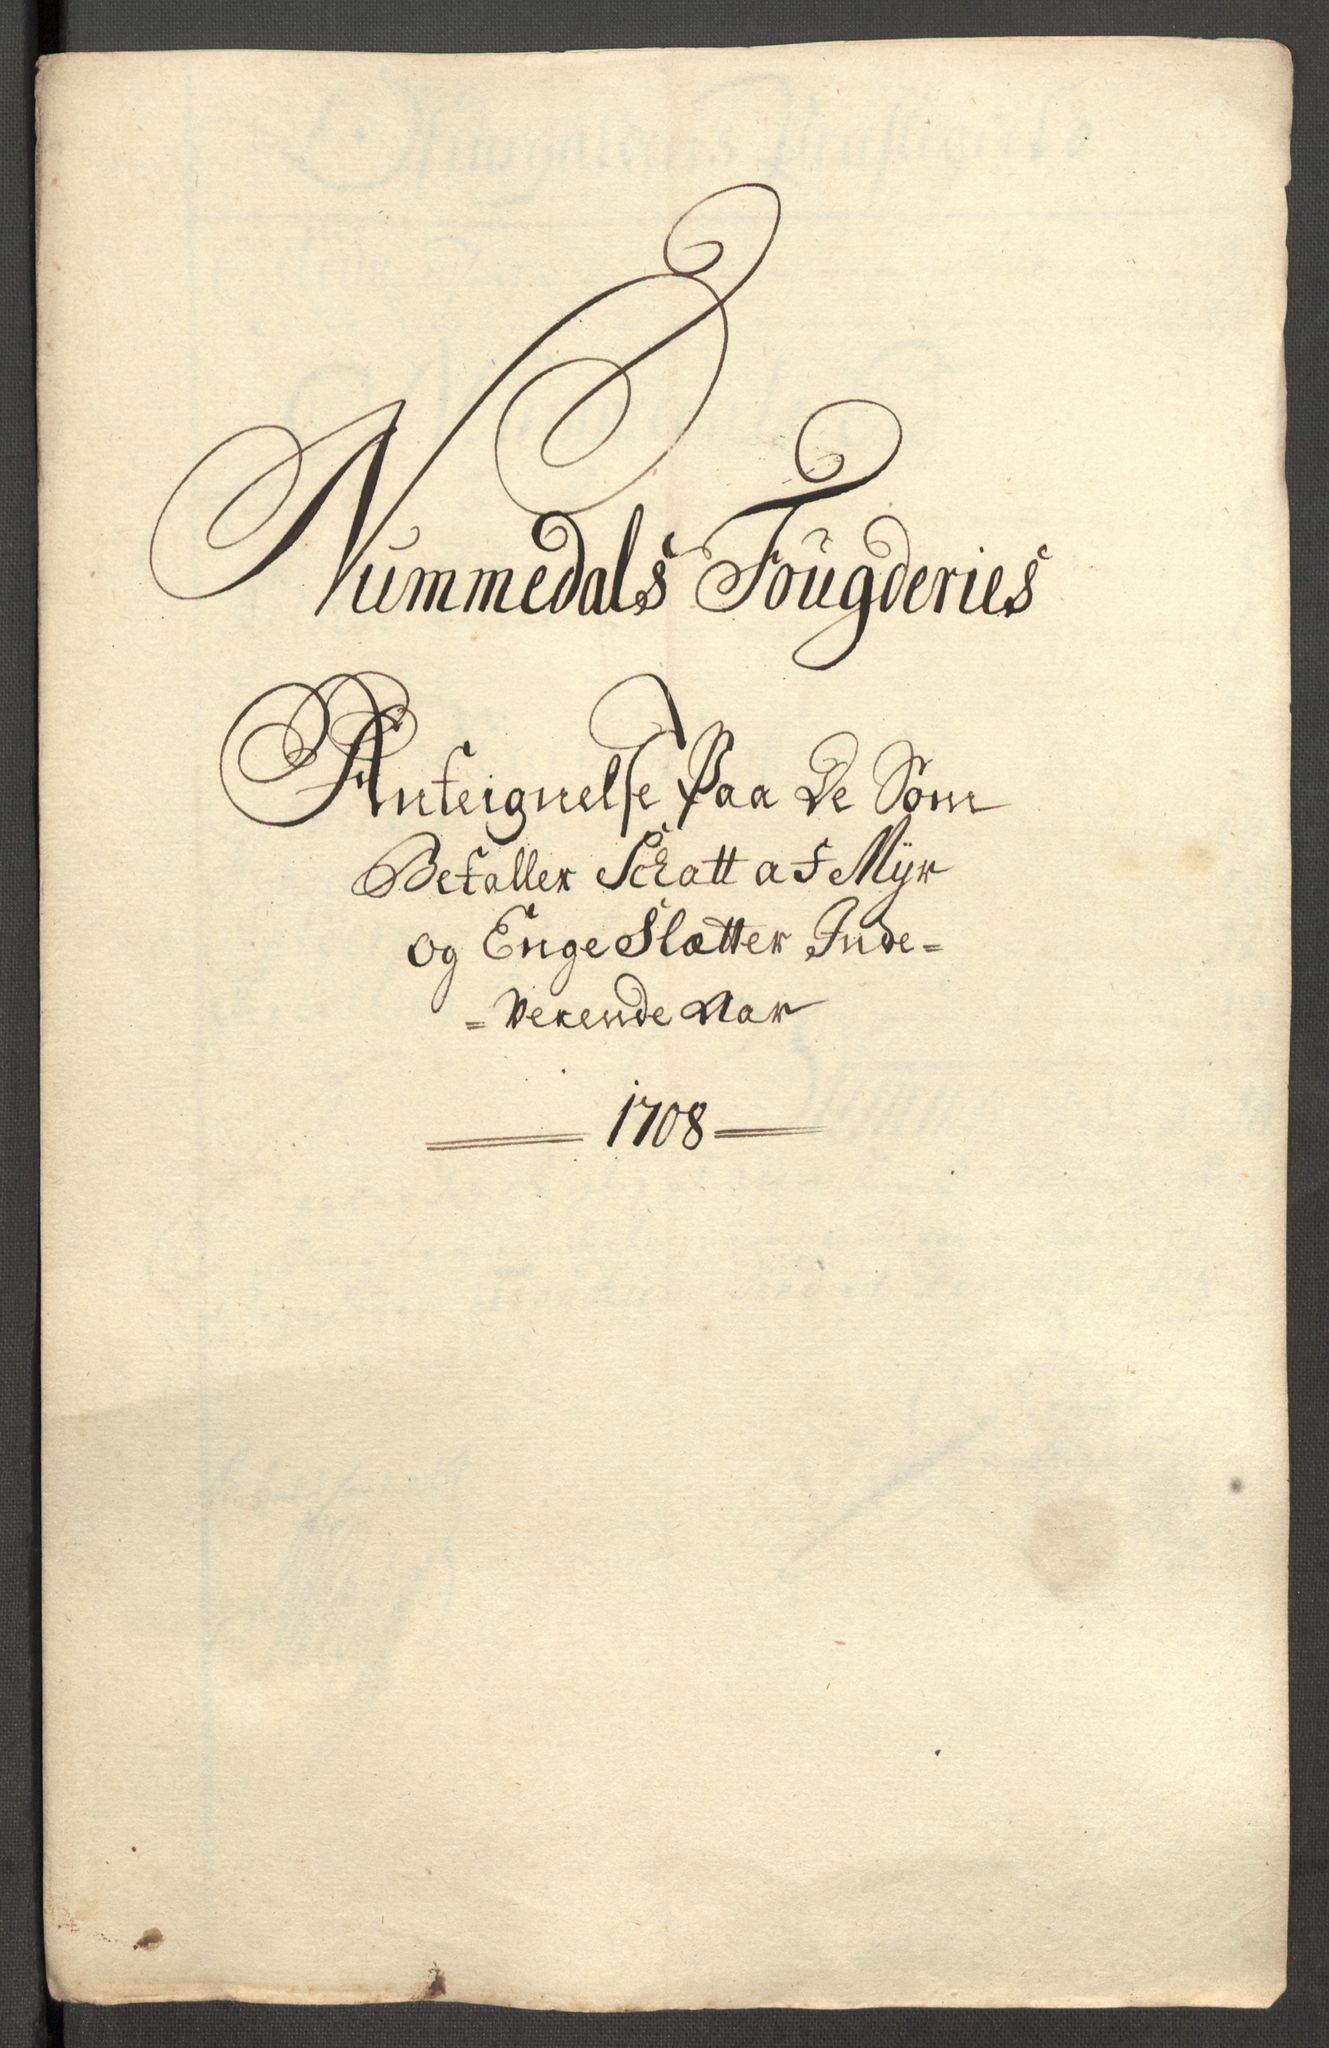 Nummedals Fougderies
Anteignelse Paa De Som
Betaller Schatt af Myr
og Enge Slætter Inde=
=Verende Aar
1708